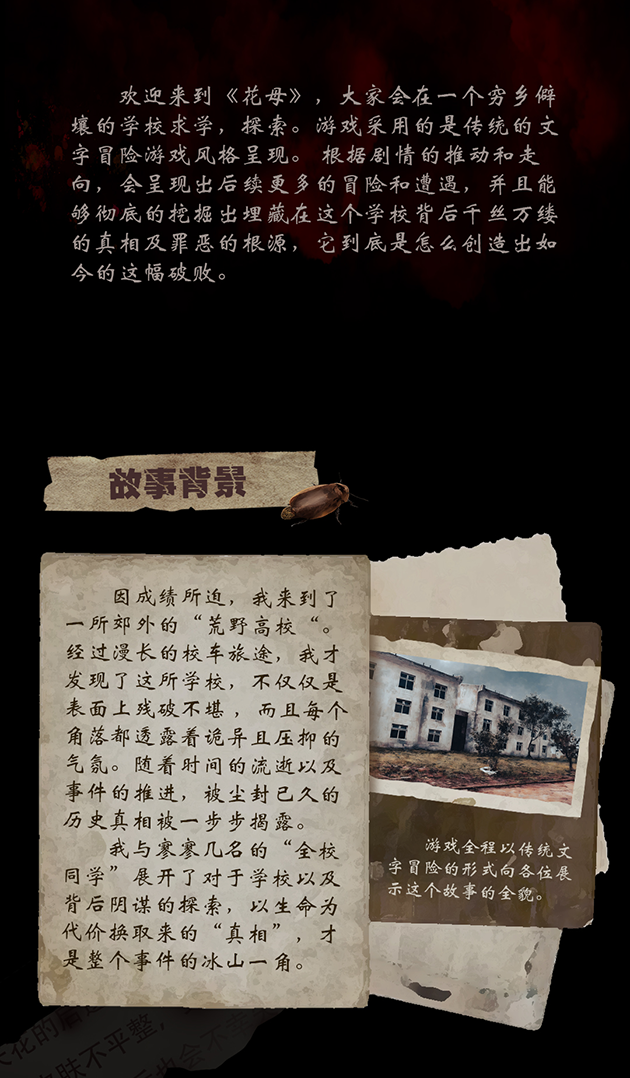 欢迎来到《花母》，大家会在一个穷乡僻
壤的学校求学，探索。游戏采用的是传统的文
字冒险游戏风格呈现。 根据剧情的推动和走
向，会呈现出后续更多的冒险和遭遇，并且能
够彻底的挖掘出埋藏在这个学校背后千丝万缕
的真相及罪恶的根源，它到底是怎么创造出如
今的这幅破败。
故事背景
因成绩所迫，我来到了
一所郊外的“荒野高校“。
经过漫长的校车旅途，我才
发现了这所学校，不仅仅是
表面上残破不堪，而且每个
角落都透露着诡异且压抑的
气氛。随着时间的流逝以及
事件的推进，被尘封已久的
历史真相被一步步揭露。
我与寥寥几名的“全校
同学”展开了对于学校以及
背后阴谋的探索，以生命为
代价换取来的“真相”，才
是整个事件的冰山一角。
游戏全程以传统文
字冒险的形式向各位展
示这个故事的全貌。
化的
肤不平整，
也会不